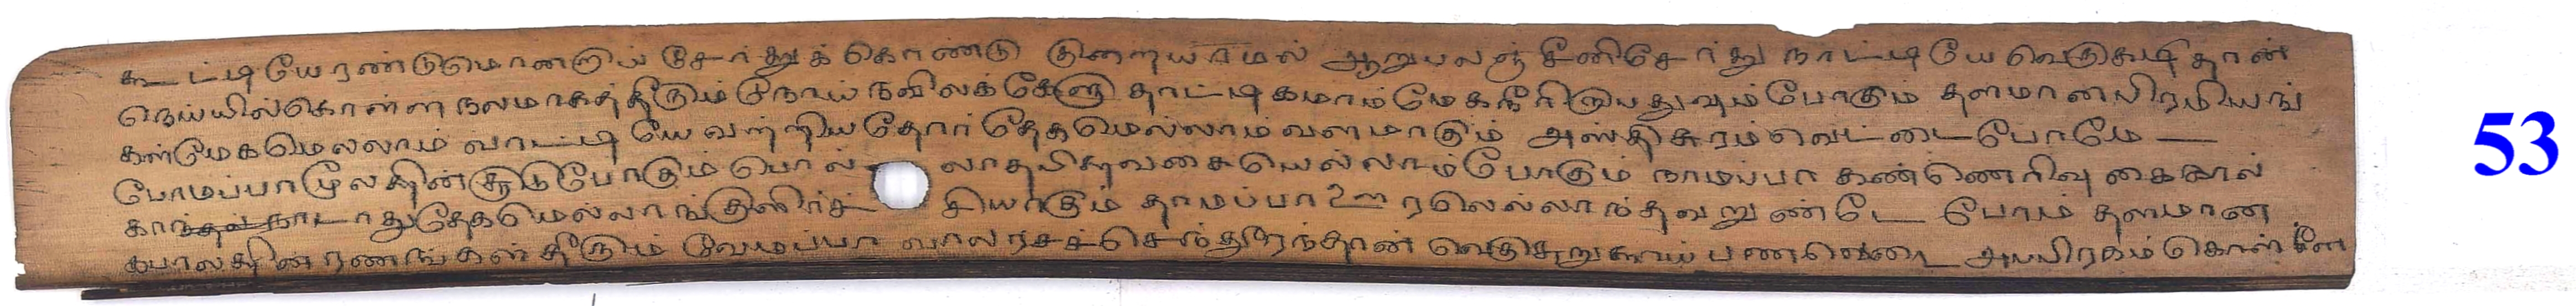 கூட்டியே ரண்டுமொண்றாய் சேர்த்துக் கொண்டு குறையாமல் ஆறுபலஞ் சீனிசேர்த்து நாட்டியே வெருகடிதான்
நெய்யில்கொள்ள நலமாகத்தீரும் நோய் நவிலக்கேளு தாட்டிகமாம் மேகநீரிருபதுவும்போகும் தளமானபிரமியங்
கள்மேகமெல்லாம் வாட்டியே வற்றியதோர் தேகமெல்லாம் வளமாகும் அஸ்திசுரம் வெட்டை போமே
போமப்பா மூலசூடுபோகும் பொல் லாதபிணிவகையெல்லாம்போகும் நாமப்பா கண்ணெரிவு கைகால்
காந்தல் காடாது தேகமெல்லாங்குளிர்ச் சியாகும் தாமப்பா ஊரலெல்லாந்தவறுண்டே போம் தளமான
கபாலதின் ரணங்கள் தீரும் வேமப்பா வாலரசச்செந்தூரந்தான் வெருசறுகாய் பணவெடை அப்பிரகம் கொள்
53